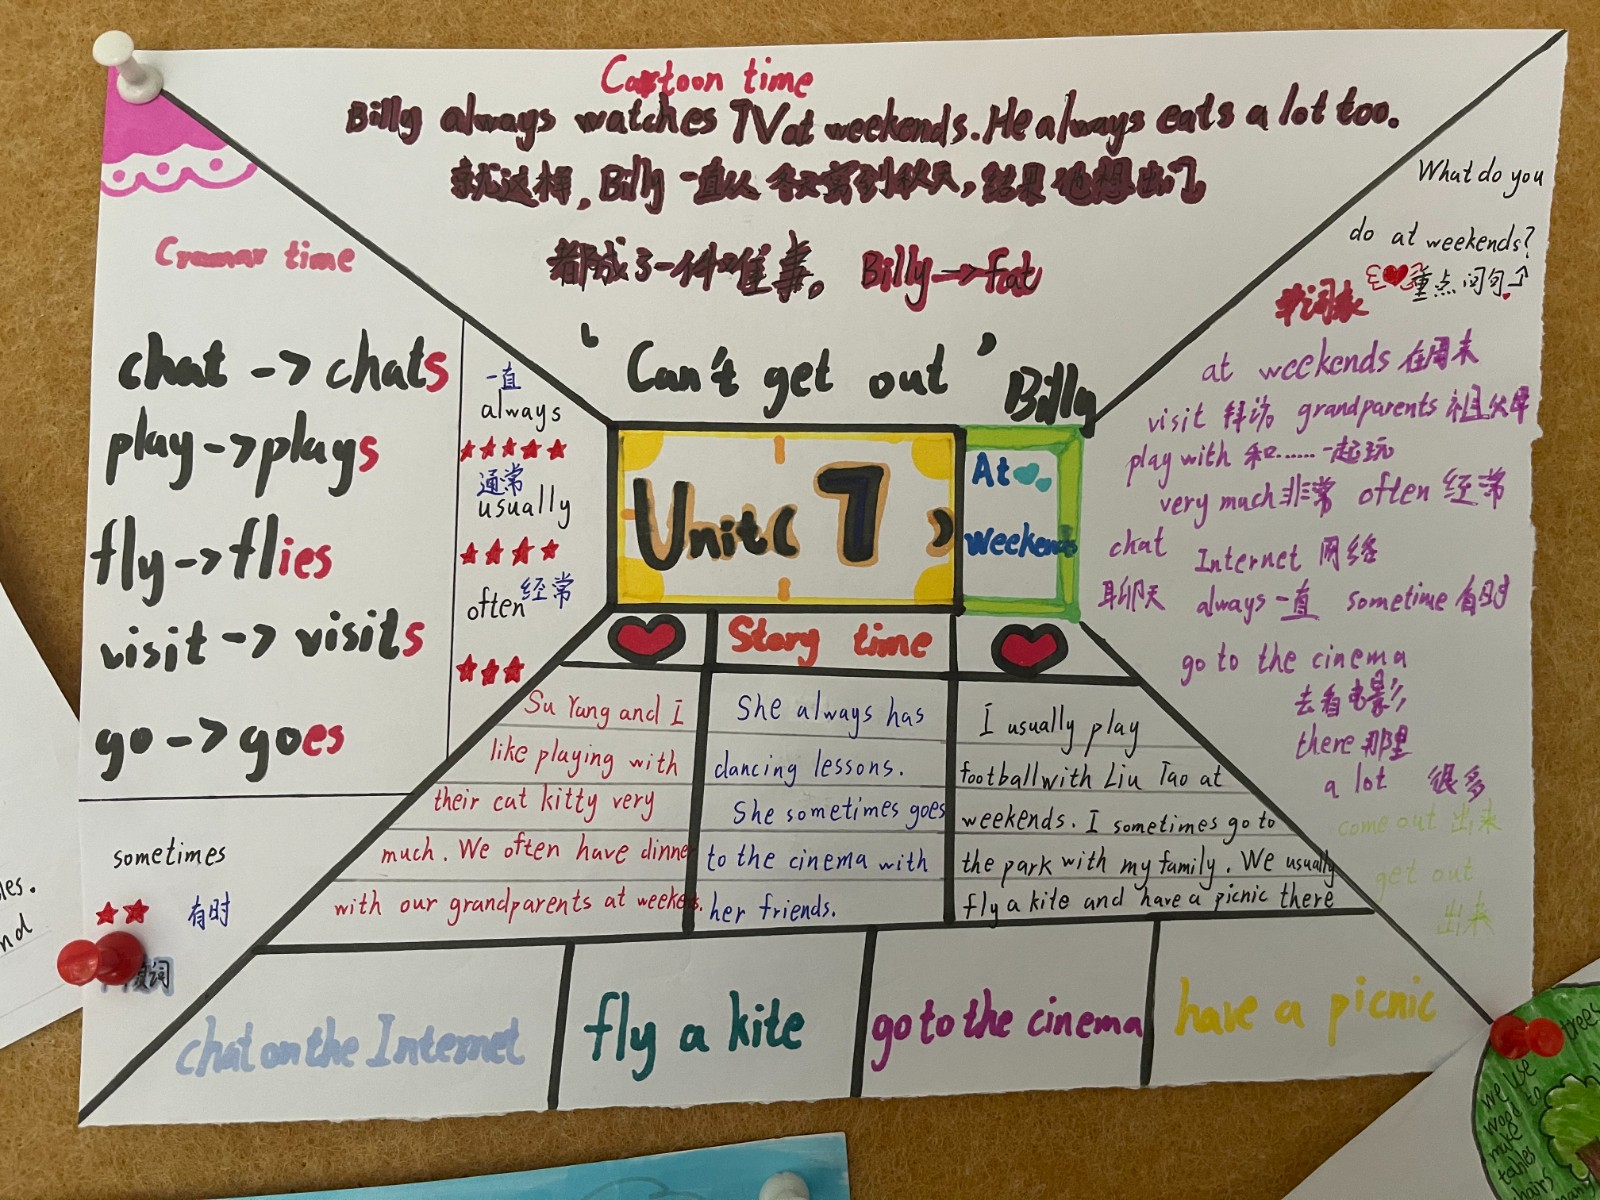 Cartoon time
Billy always watches TV at weekends. He always eats a lot too.
就这样, Billy 一直从冬天宅到秋天, 结果他想出门
都成了一件难事。 Billy→fat
‘Can't get out’ Billy
Cramar time
chat -> chats
play -> plays
fly -> flies
visit -> visits
go -> goes
一直
always
通常
usually
often 经常
sometimes
有时
Unit( 7 )
At
weekends
Story time
Su Yang and I
like playing with
their cat kitty very
much. We often have dinner
with our grandparents at weekends.
She always has
dancing lessons.
She sometimes goes
to the cinema with
her friends.
I usually play
football with Liu Tao at
weekends. I sometimes go to
the park with my family. We usually
fly a kite and have a picnic there
What do you
do at weekends?
重点问句
单词表
at weekends 在周末
visit 拜访 grandparents 祖父母
play with 和……一起玩
very much 非常 often 经常
chat
聊天
Internet 网络
always 一直 sometime 有时
go to the cinema
去看电影
there 那里
a lot 很多
come out 出来
get out
出来
chat on the Internet
fly a kite
go to the cinema
have a picnic
les.
nd
trees
we use
wood to
make
tables